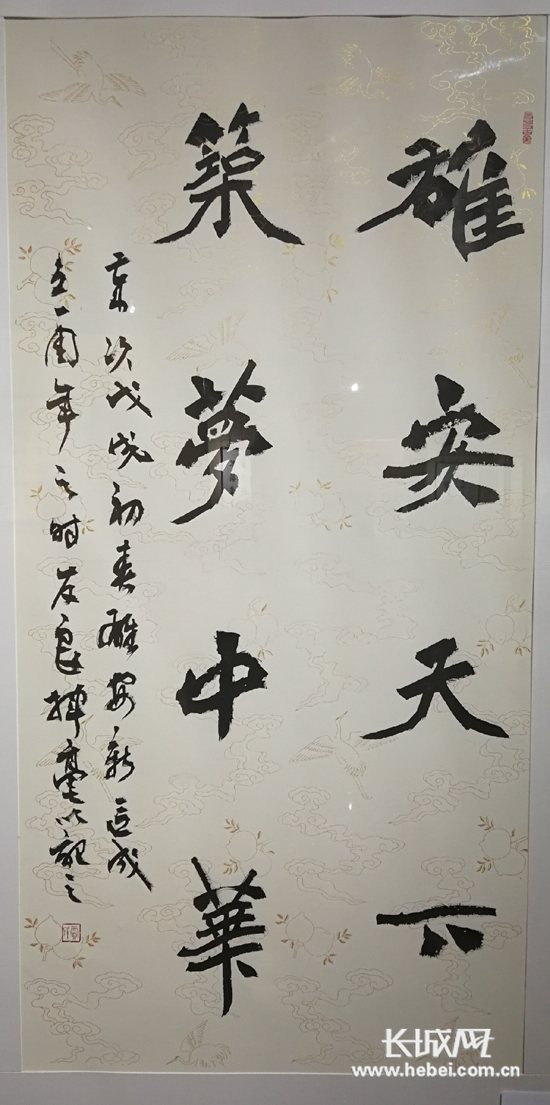 雄安天下
築夢中華
歲次戊戌初春雄安新區成
立一周年之時良揮毫以記之
长城网
www.hebei.com.cn